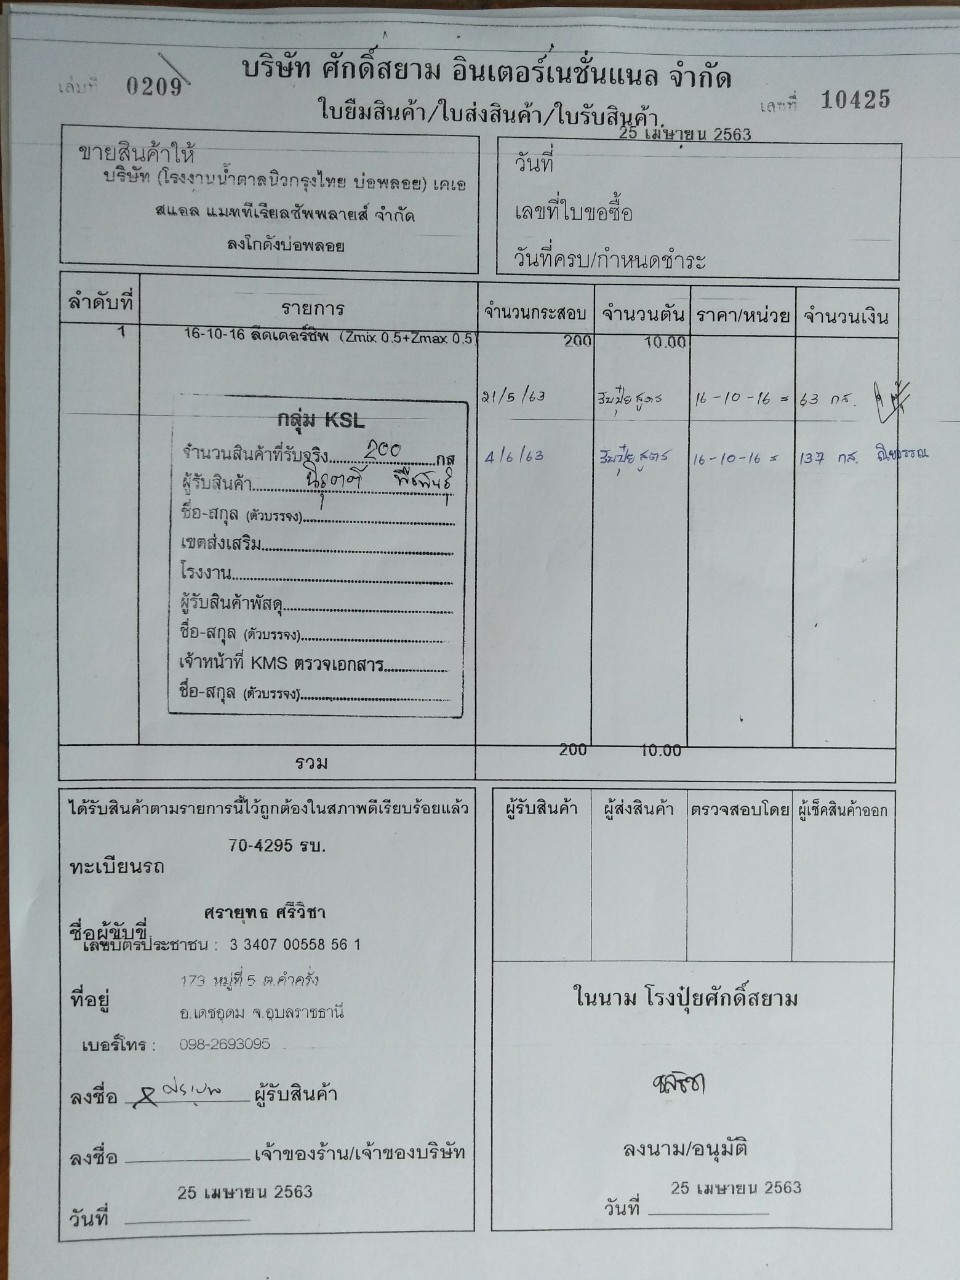 เล่มที่ 0209
บริษัท ศักดิ์สยาม อินเตอร์เนชั่นแนล จำกัด
ใบยืมสินค้า/ใบส่งสินค้า/ใบรับสินค้า
เลขที่ 10425
ขายสินค้าให้
บริษัท (โรงงานน้ำตาลนิวกรุงไทย บ่อพลอย) เคเอ
สแอล แมททีเรียลซัพพลายส์ จำกัด
ลงโกดังบ่อพลอย
25 เมษายน 2563
วันที่
เลขที่ใบขอซื้อ
วันที่ครบ/กำหนดชำระ
ลำดับที่ รายการ จำนวนกระสอบ จำนวนตัน ราคา/หน่วย จำนวนเงิน
1 16-10-16 ลีดเดอร์ชิพ (Zmix 0.5+Zmax 0.5) 200 10.00
21/5/63 รับปุ๋ยสูตร 16-10-16 = 63 กส.
4/6/63 รับปุ๋ยสูตร 16-10-16 = 137 กส.
กลุ่ม KSL
จำนวนสินค้าที่รับจริง 200 กส
ผู้รับสินค้า
ชื่อ-สกุล (ตัวบรรจง)
เขตส่งเสริม
โรงงาน
ผู้รับสินค้าพัสดุ
ชื่อ-สกุล (ตัวบรรจง)
เจ้าหน้าที่ KMS ตรวจเอกสาร
ชื่อ-สกุล (ตัวบรรจง)
รวม 200 10.00
ได้รับสินค้าตามรายการนี้ไว้ถูกต้องในสภาพดีเรียบร้อยแล้ว
70-4295 รบ.
ทะเบียนรถ
ศรายุทธ ศรีวิชา
ชื่อผู้ขับขี่
เลขบัตรประชาชน : 3 3407 00558 56 1
173 หมู่ที่ 5 ต.คำครั่ง
ที่อยู่
อ.เดชอุดม จ.อุบลราชธานี
เบอร์โทร : 098-2693095
ลงชื่อ ผู้รับสินค้า
ลงชื่อ เจ้าของร้าน/เจ้าของบริษัท
25 เมษายน 2563
วันที่
ผู้รับสินค้า ผู้ส่งสินค้า ตรวจสอบโดย ผู้เช็คสินค้าออก
ในนาม โรงปุ๋ยศักดิ์สยาม
ลงนาม/อนุมัติ
25 เมษายน 2563
วันที่